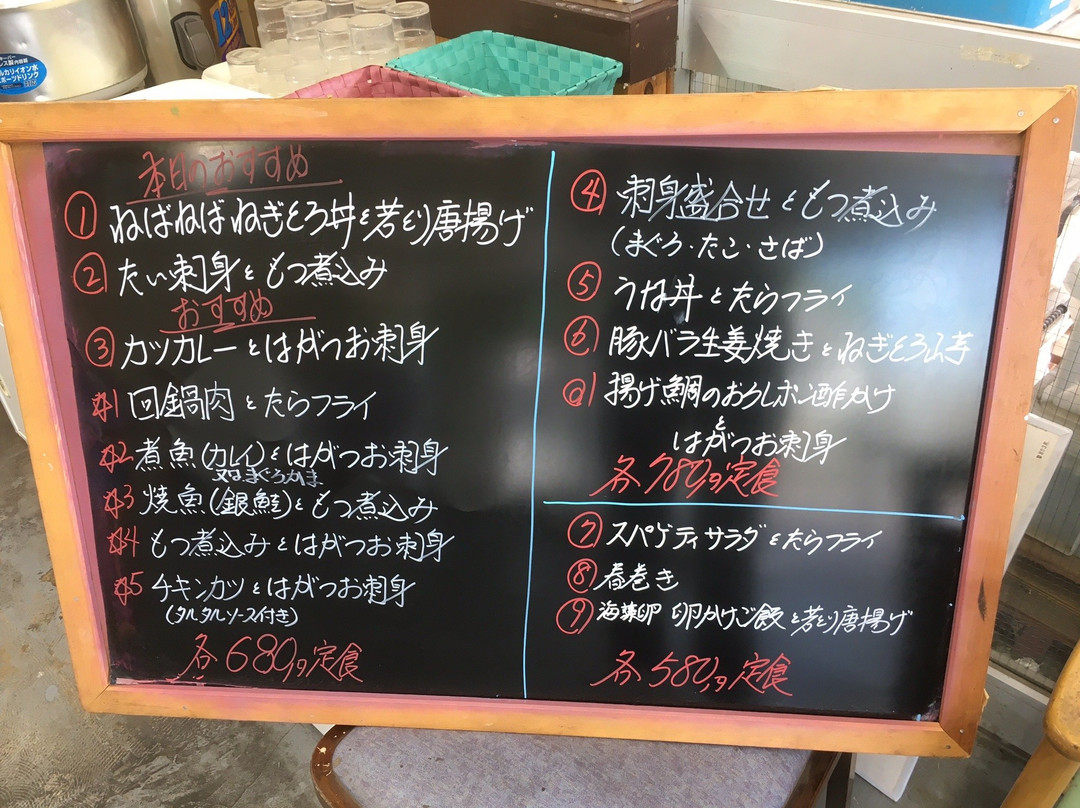 本日のおすすめ
① ねばねばねぎとろ丼と若どり唐揚げ
② たい刺身ともつ煮込み
おすすめ
③ カツカレーとはがつお刺身
#1 回鍋肉とたらフライ
#2 煮魚(カレイ)とはがつお刺身
又はまぐろかま
#3 焼魚(銀鮭)ともつ煮込み
#4 もつ煮込みとはがつお刺身
#5 チキンカツとはがつお刺身
(タルタルソース付き)
各680円定食
④ 刺身盛合せともつ煮込み
(まぐろ・たこ・さば)
⑤ うな丼とたらフライ
⑥ 豚バラ生姜焼きとねぎとろ山芋
@1 揚げ鯛のおろしポン酢かけ
と
はがつお刺身
各780円定食
⑦ スパゲティサラダとたらフライ
⑧ 春巻き
⑨ 海藻卵 卵かけご飯と若どり唐揚げ
各580円定食
アルカリイオン水
スポーツドリンク